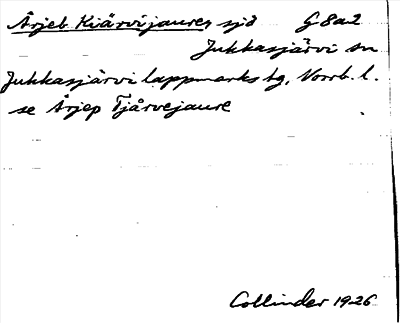 Årjeb Kiärvijaures sjö G8a2
Jukkasjärvi sn
Jukkasjärvi lappmarks tg, Norrb. l.
se Årjep Tjårvejaure
Collinder 1926